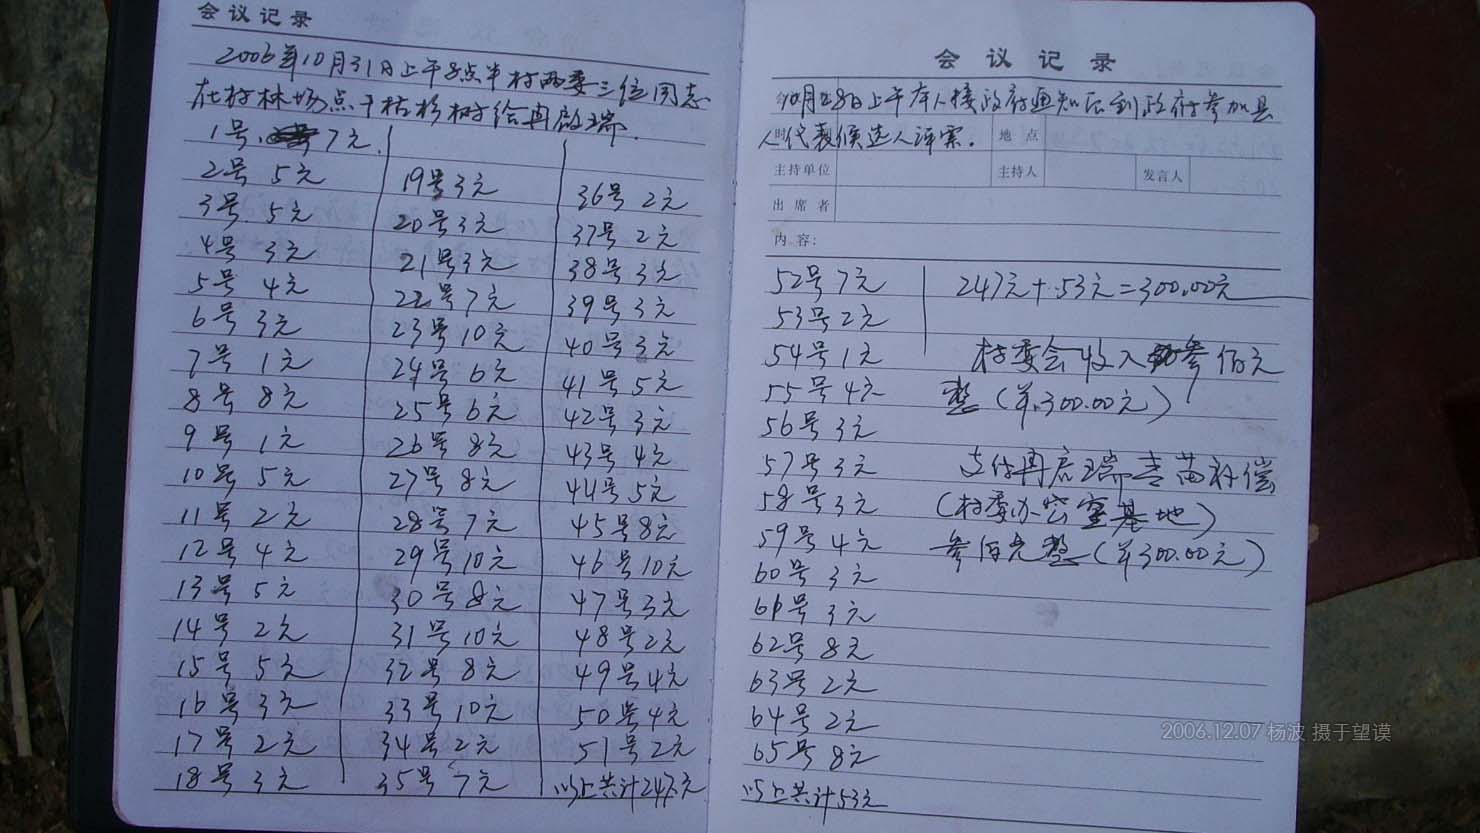 会议记录
2006年10月31日上午8点半村两委三位同志
在村林场点干枯杉树给冉启瑞.
1号. 7元.
2号 5元
3号 5元
4号 3元
5号 4元
6号 3元
7号 1元
8号 8元
9号 1元
10号 5元
11号 2元
12号 4元
13号 5元
14号 2元
15号 5元
16号 3元
17号 2元
18号 3元
19号3元
20号3元
21号3元
22号7元
23号10元
24号 6元
25号6元
26号 8元
27号 8元
28号 7元
29号10元
30号8元
31号10元
32号 8元
33号10元
34号2元
35号 7元
36号 2元
37号 2元
38号 3元
39号 3元
40号3元
41号 5元
42号 3元
43号 4元
44号 5元
45号8元
46号10元
47号3元
48号2元
49号4元
50号4元
51号2元
以上共计247元
会议记录
10月28日上午本人接政府通知后到政府参加县
人代表候选人评案.
时
地点
主持单位
主持人
发言人
出席者
内容:
52号7元
53号2元
54号1元
55号4元
56号3元
57号3元
58号3元
59号4元
60号 3元
61号 3元
62号 8元
63号2元
64号2元
65号 8元
以上共计53元
247元+53元=300.00元
村委会收入叁佰元
整(羊300.00元)
支付冉启瑞青苗补偿
(村委办公室基地)
叁佰元整(羊300.00元)
2006.12.07 杨波 摄于望谟